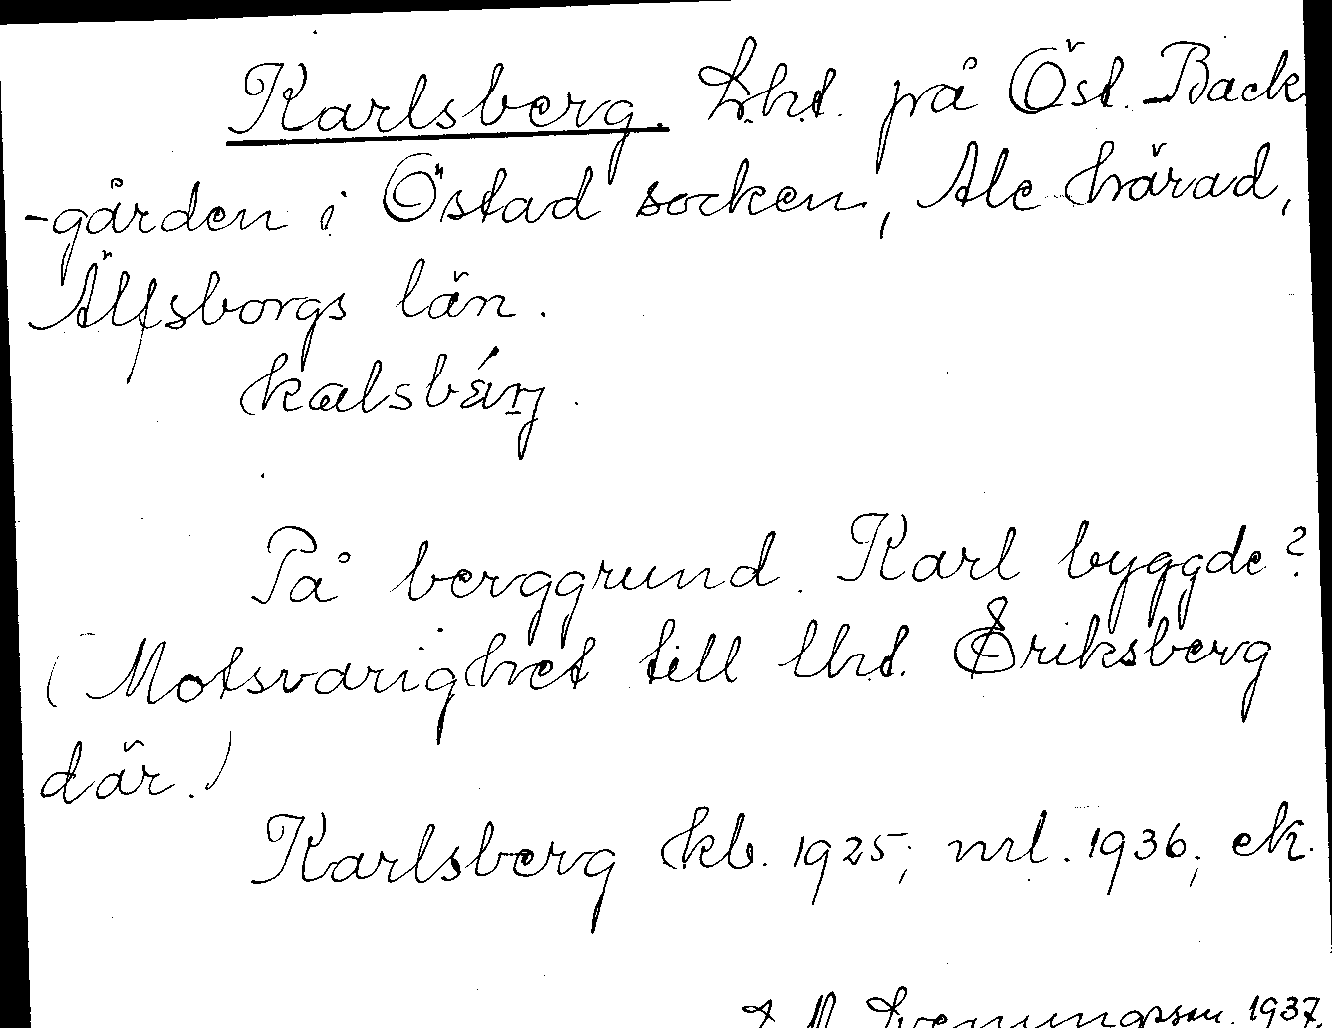 Karlsberg. Lht. på Öst. Back
-gården i Östad socken, Ale härad,
Älfsborgs län.
kalsbärj.
På berggrund. Karl byggde?
(Motsvarighet till lht. Eriksberg
där.)
Karlsberg kb. 1925; mrl. 1936; ek.
Svenungsson. 1937.